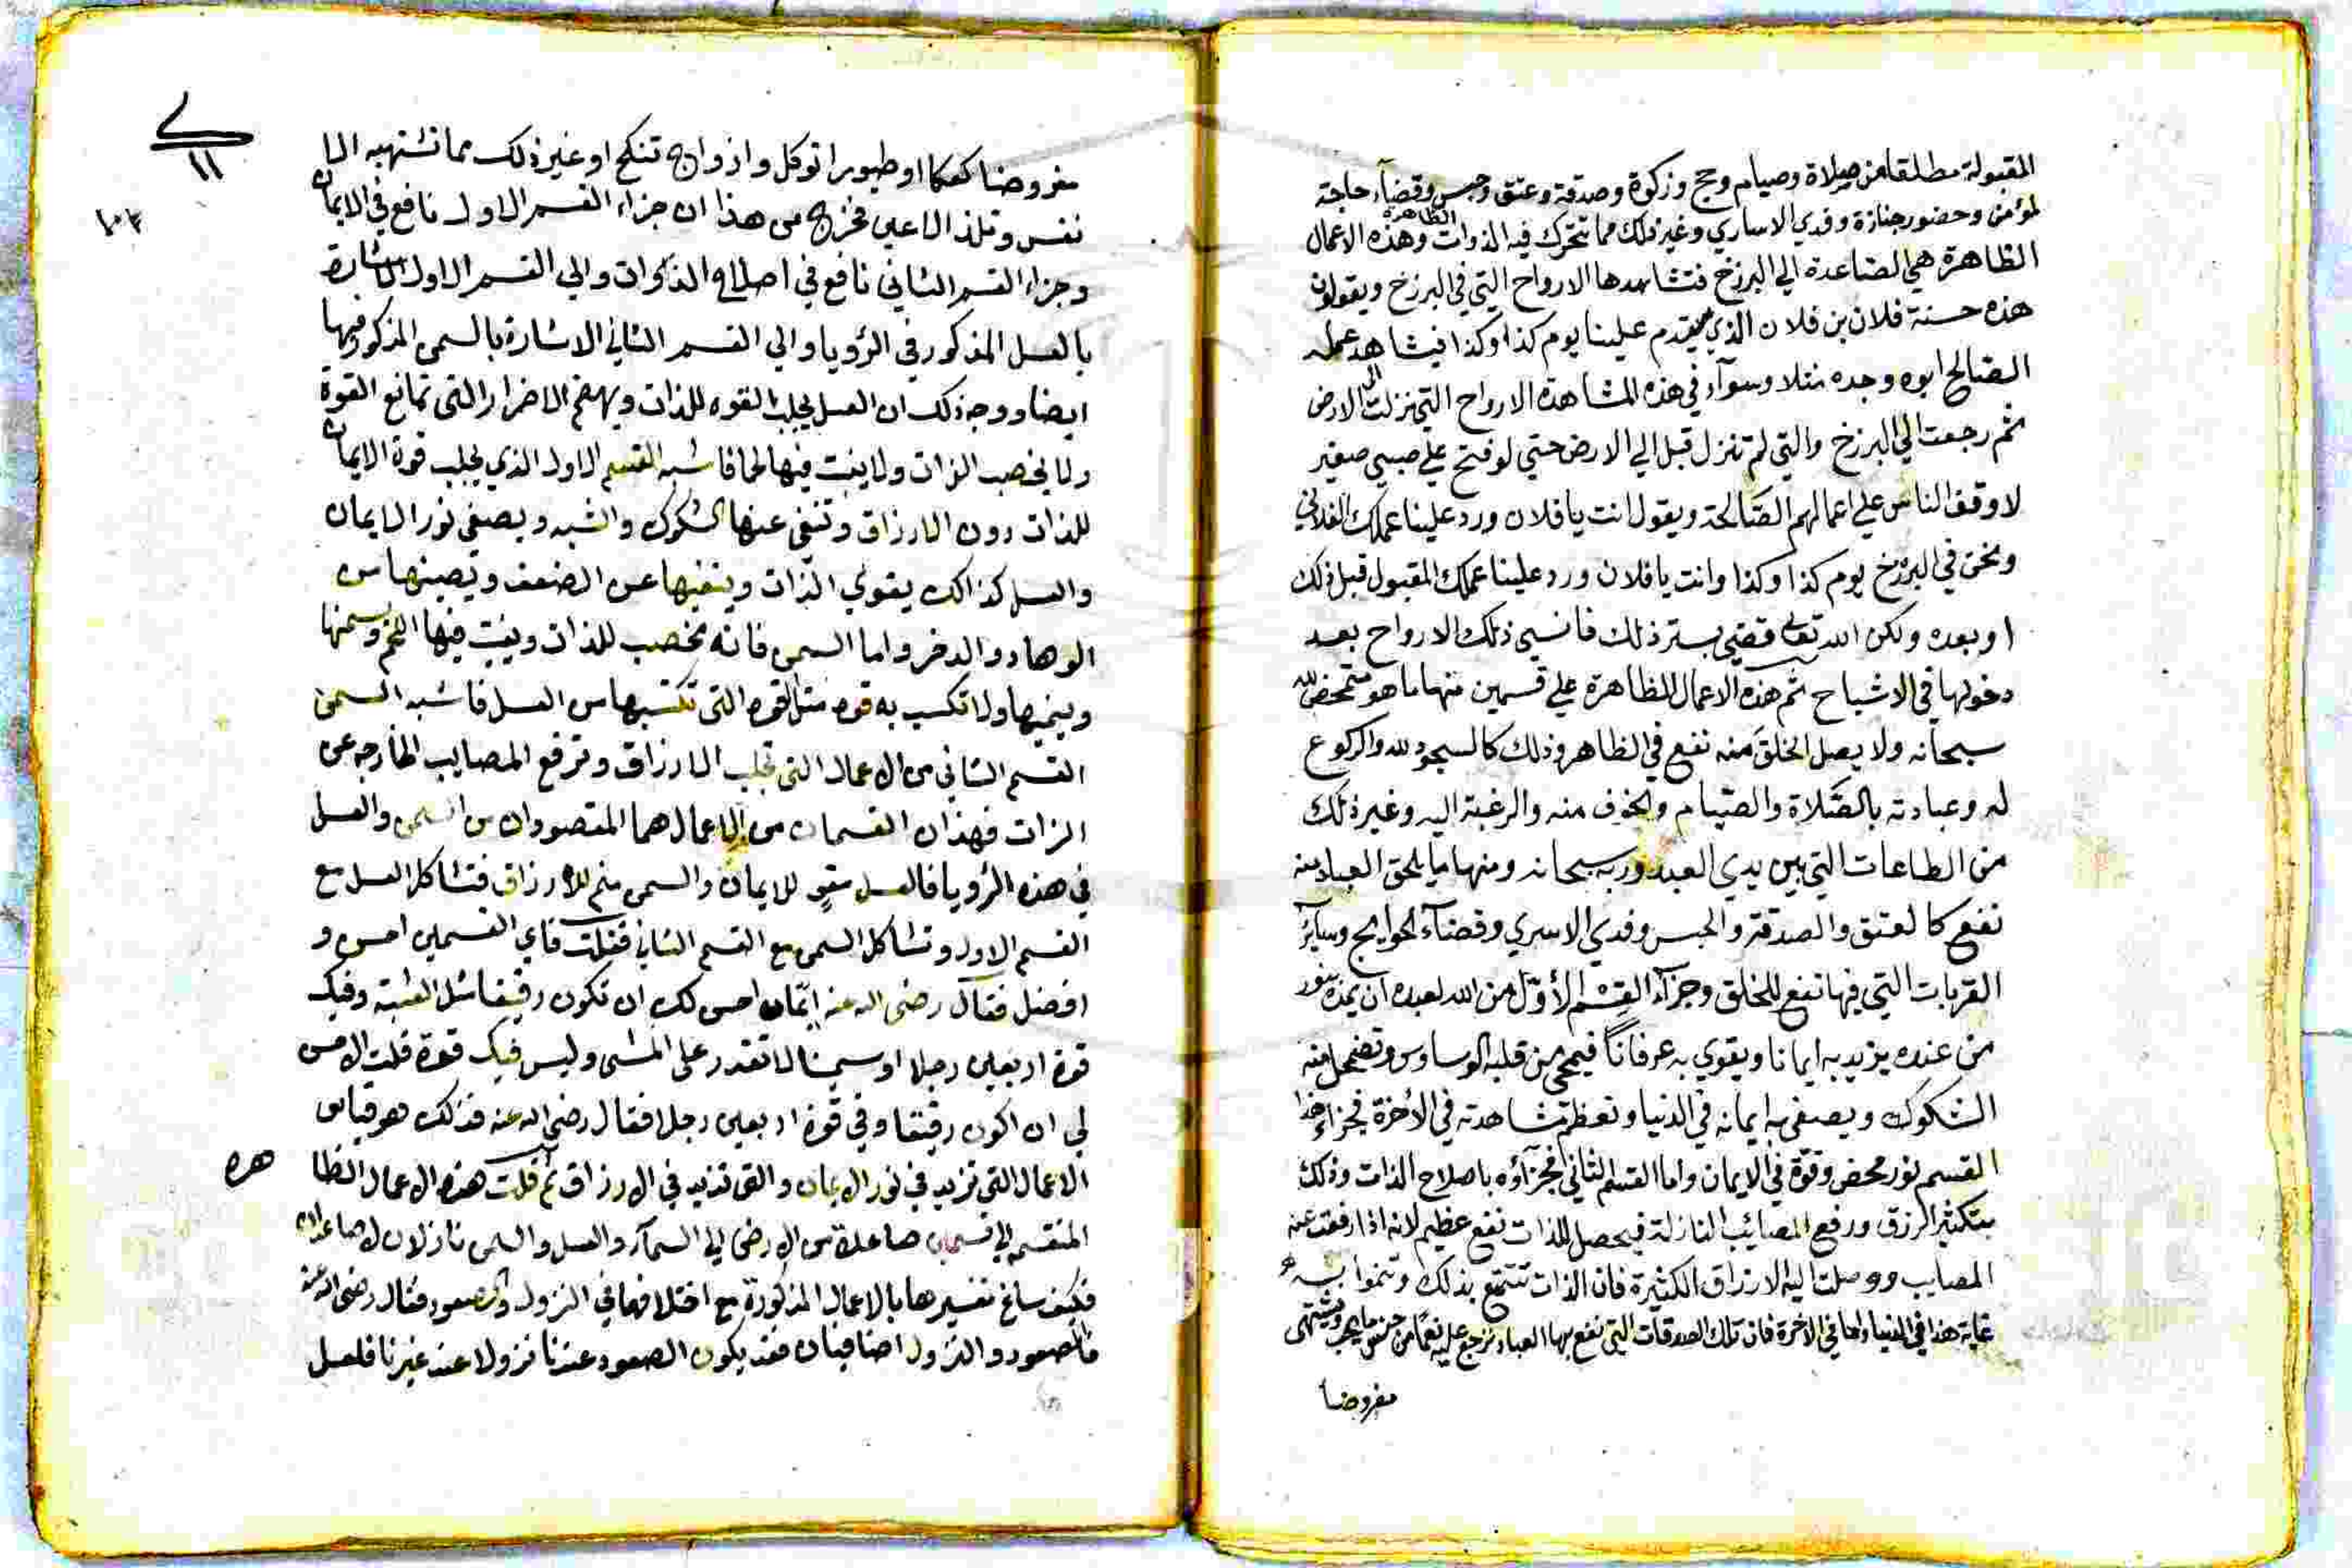 المقبولة مطلقا من صلاة وصيام وحج وزكوة وصدقة وعتق وحبس وقضآء حاجة
لمؤمن وحضور جنازة وفدي الاساري وغير ذلك مما تتحرك فيه الذوات الظاهرة وهذه الاعمال
الظاهرة هي الصاعدة الي البرزخ فتشاهدها الارواح التي في البرزخ ويقولون
هذه حسنة فلان بن فلان الذي يقدم علينا يوم كذا وكذا فيشاهد عمله
الصالح ابوه وجده مثلا وسوآء في هذه المشاهدة الارواح التي نزلت الى الارض
ثم رجعت الي البرزخ والتي لم تنزل قبل الي الارض حتي لو فتح علي صبي صغير
لاوقف الناس علي اعمالهم الصالحة ويقول انت يا فلان ورد علينا عملك الفلاني
ونحن في البرزخ يوم كذا وكذا وانت يا فلان ورد علينا عملك المقبول قبل ذلك
او بعده ولكن الله تعالى قضي بستر ذلك فانسي ذلك الارواح بعد
دخولها في الاشباح ثم هذه الاعمال الظاهرة علي قسمين منها ما هو متمحض لله
سبحانه ولا يصل الخلق منه نفع في الظاهر وذلك كالسجود لله والركوع
له وعبادته بالصلاة والصيام والخوف منه والرغبة اليه وغير ذلك
من الطاعات التي بين يدي العبد وربه سبحانه ومنها ما يلحق العباد منه
نفع كالعتق والصدقة والحبس وفدي الاسري وقضآء الحوايج وسآئر
القربات التي فيها نفع للخلق وجزآء القسم الأول من الله لعبده ان يمده بنور
من عنده يزيد به ايمانا ويقوي به عرفانا فيمحي من قلبه الوساوس وتضمحل منه
الشكوك ويصفي به ايمانه في الدنيا وتعظم مشاهدته في الأخرة فجزاء هذا
القسم نور محض وقوة في الايمان واما القسم الثاني فجزآؤه باصلاح الذات وذلك
بتكثير الرزق ورفع المصائب النازلة فيحصل للذات نفع عظيم لانه اذا ارفعت عنه
المصايب ووصلت اليه الارزاق الكثيرة فان الذات تتمتع بذلك وتنموا به
غاية هذا في الدنيا واما في الاخرة فان تلك الصدقات التي نفع بها العباد ترجع عليه نعما من جنس ما يحب ويشتهى
مفروضا
١١
١٠٣
مفروضا كعكا او طيورا توكل وازواج تنكح او غير ذلك مما تشتهيه الا
نفس وتلذ الاعين فخرج من هذا ان جزاء القسم الاول نافع في الايمان
وجزاء القسم الثاني نافع في اصلاح الذوات والي القسم الاول الاشارة
بالعسل المذكور في الرؤيا والي القسم الثاني الاشارة بالسمن المذكور فيها
ايضا ووجه ذلك ان العسل يجلب القوه للذات ويهضم الاضرار التي تمانع القوة
ولا يخصب الذات ولا ينبت فيها لحما فاشبه القسم الاول الذي يجلب قوة الايمان
للذات دون الارزاق وتنفي عنها الشكوك والشبه ويصفي نور الايمان
والعسل كذالك يقوي الذات وينفيها عن الضعف ويصفيها من
الوهاد والدفر واما السمن فانه يخصب للذات وينبت فيها اللحم وسمنها
وينميها ولا تكسب به قوه مثل القوه التي تكتسبها من العسل فاشبه السمن
القسم الثاني من الاعمال التي تجلب الارزاق وترفع المصايب الخارجه عن
الذات فهذان القسمان من الاعمال هما المقصودان من السمن والعسل
في هذه الرؤيا فالعسل مقو للايمان والسمن منم للارزاق فتشاكل العسل مع
القسم الاول وتشاكل السمن مع القسم الثاني فقلت فاي القسمين احسن و
افضل فقال رضى الله عنه ايما احسن لك ان تكون رقيقا مثل القشبة وفيك
قوة اربعين رجلا او سمينا لا تقدر على المشى وليس فيك قوة قلت الاحسن
لي ان اكون رقيقا وفي قوة اربعين رجلا فقال رضي الله عنه فذلك هو قياس
الاعمال التي تزيد في نور الايمان والتي تزيد في الارزاق ثم قلت هذه الاعمال الظا هره
المنقسمه الي قسمين صاعدة من الارض الي السمآء والعسل والسمن نازلان لا صاعدان
فكيف ساغ تفسيرها بالاعمال المذكورة مع اختلافها في النزول والصعود فقال رضي الله عنه
فالصعود والنزول اضافيان فقد يكون الصعود عندنا نزولا عند غيرنا فلعل